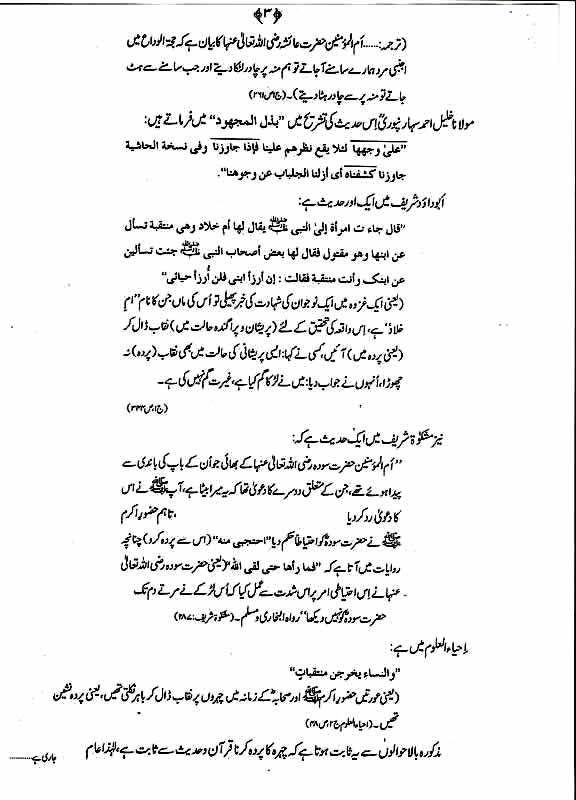 ﴿۳﴾
(ترجمہ:……اُم المؤمنین حضرت عائشہ رضی اللہ تعالیٰ عنہا کا بیان ہے کہ حجۃ الوداع میں
اجنبی مرد ہمارے سامنے آجاتے تو ہم منہ پر چادر لٹکا دیتے اور جب سامنے سے ہٹ
جاتے تو منہ پر سے چادر ہٹا دیتے)۔ (ج۱ص۲۶۱)
مولانا خلیل احمد سہارنپوریؒ اِس حدیث کی تشریح میں "بذل المجهود" میں فرماتے ہیں:
"علیٰ وجهها لئلا يقع نظرهم علينا فإذا جاوزنا وفى نسخة الحاشية
جاوزنا كشفناه أى أزلنا الجلباب عن وجوهنا".
ابوداؤد شریف میں ایک اور حدیث ہے:
"قال جاء ت امرأة إلىٰ النبى ﷺ يقال لها أم خلاد وهى منتقبة تسأل
عن ابنها وهو مقتول فقال لها بعض أصحاب النبى ﷺ جئت تسألين
عن ابنك وأنت منتقبة فقالت : إن أرزأ ابنى فلن أرزأ حيائى"
(یعنی ایک غزوہ میں ایک نوجوان کی شہادت کی خبر پھیلی تو اُس کی ماں جن کا نام "اُم
خلاد" ہے، اِس واقعہ کی تحقیق کے لئے (پریشان و پراگندہ حالت میں) نقاب ڈال کر
(یعنی پردہ میں) آئیں، کسی نے کہا: ایسی پریشانی کی حالت میں بھی نقاب (پردہ) نہ
چھوڑا، اُنہوں نے جواب دیا: میں نے لڑکا گم کیا ہے، غیرت گم نہیں کی ہے۔
نیز مشکوٰۃ شریف میں ایک حدیث ہے کہ:
"اُم المؤمنین حضرت سودہ رضی اللہ تعالیٰ عنہا کے بھائی جو اُن کے باپ کی باندی سے
پیدا ہوئے تھے، جن کے متعلق دوسرے کا دعویٰ تھا کہ یہ میرا بیٹا ہے، آپ ﷺ نے اس
کا دعویٰ رد کر دیا ،تاہم حضورِ اکرم
ﷺ نے حضرت سودہؓ کو احتیاطاً حکم دیا "احتجبى منه" (اس سے پردہ کرو) چنانچہ
روایات میں آتا ہے کہ "فما رأها حتى لقى الله" (یعنی حضرت سودہ رضی اللہ تعالیٰ
عنہا نے اِس احتیاطی امر پر اس شدت سے عمل کیا کہ اُس لڑکے نے مرتے دم تک
حضرت سودہؓ کو نہیں دیکھا" رواہ البخاری و مسلم۔ (مشکوٰۃ شریف:۲۸۷)
اِحیاء العلوم میں ہے:
"والنساء يخرجن منتقبات"
(یعنی عورتیں حضورِ اکرم ﷺ اور صحابہؓ کے زمانہ میں چہروں پر نقاب ڈال کر باہر نکلتی تھیں، یعنی پردہ نشین
تھیں۔ (احیاء العلوم ج۲،ص۴۸)
مذکورہ بالا حوالوں سے یہ ثابت ہوتا ہے کہ چہرہ کا پردہ کرنا قرآن و حدیث سے ثابت ہے، لہٰذا عام
جاری ہے………